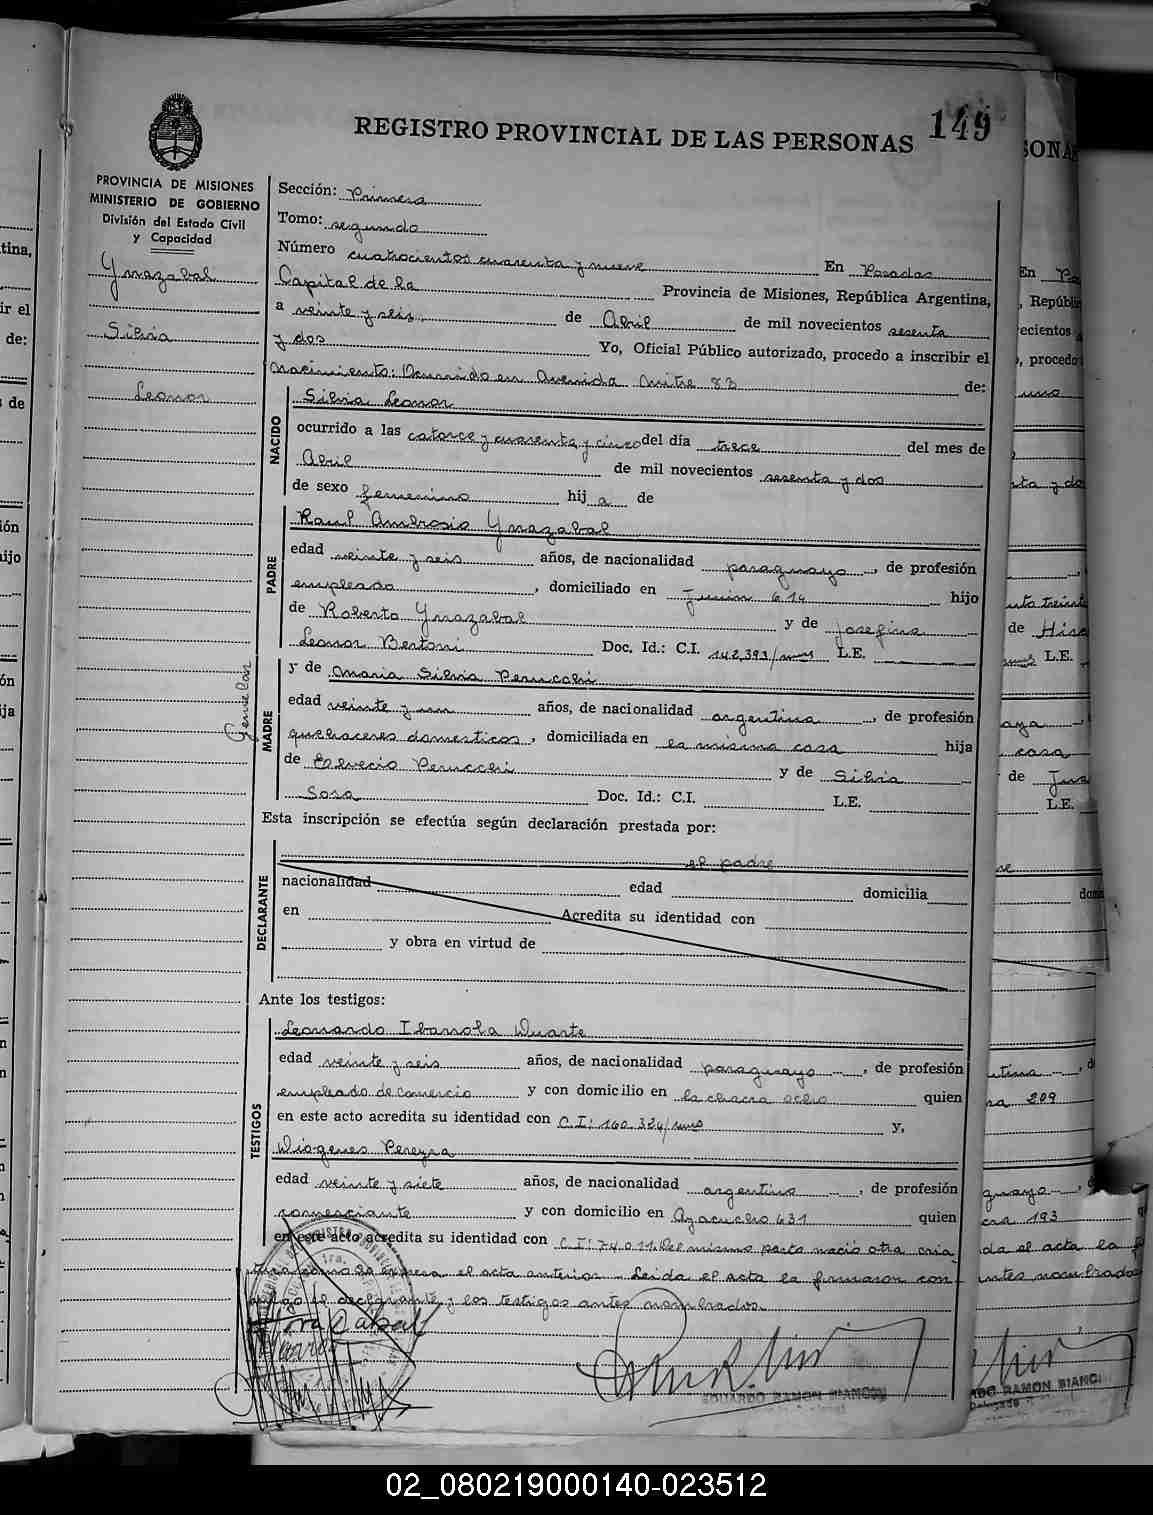 REGISTRO PROVINCIAL DE LAS PERSONAS 149
PROVINCIA DE MISIONES
MINISTERIO DE GOBIERNO
División del Estado Civil
y Capacidad
Yrrazabal
Silvia
Leonor
Gemelar
Sección: Primera
Tomo: segundo
Número cuatrocientos cuarenta y nueve En Posadas
Capital de la Provincia de Misiones, República Argentina,
a veinte y seis de Abril de mil novecientos sesenta
y dos Yo, Oficial Público autorizado, procedo a inscribir el
nacimiento: Ocurrido en Avenida Mitre 83 de:
NACIDO
Silvia Leonor
ocurrido a las catorce y cuarenta y cinco del día trece del mes de
Abril de mil novecientos sesenta y dos
de sexo femenino hij a de
PADRE
Raul Ambrosio Yrrazabal
edad veinte y seis años, de nacionalidad paraguayo, de profesión
empleado, domiciliado en Junin 614 hijo
de Roberto Yrrazabal y de Josefina
Leonor Bertoni Doc. Id.: C.I. 142,393/mnes L.E.
MADRE
y de Maria Silvia Perucchi
edad veinte y un años, de nacionalidad argentina, de profesión
quehaceres domesticos, domiciliada en la misma casa hija
de Elvecio Perucchi y de Silvia
Sosa Doc. Id.: C.I. L.E.
Esta inscripción se efectúa según declaración prestada por:
DECLARANTE
el padre
nacionalidad edad domicilia
en Acredita su identidad con
y obra en virtud de
Ante los testigos:
TESTIGOS
Leonardo Ibarrola Duarte
edad veinte y seis años, de nacionalidad paraguayo, de profesión
empleado de comercio y con domicilio en la chacra ocho quien
en este acto acredita su identidad con C.I: 160.324/mnes y,
Diogenes Pereyra
edad veinte y siete años, de nacionalidad argentino, de profesión
comerciante y con domicilio en Ayacucho 631 quien
en este acto acredita su identidad con C.I: 74.011. Del mismo parto nació otra cria
tura como se expresa el acta anterior - Leida el acta la firmaron con-
migo el declarante y los testigos antes nombrados.
EDUARDO RAMON BIANCHI
02_080219000140-023512